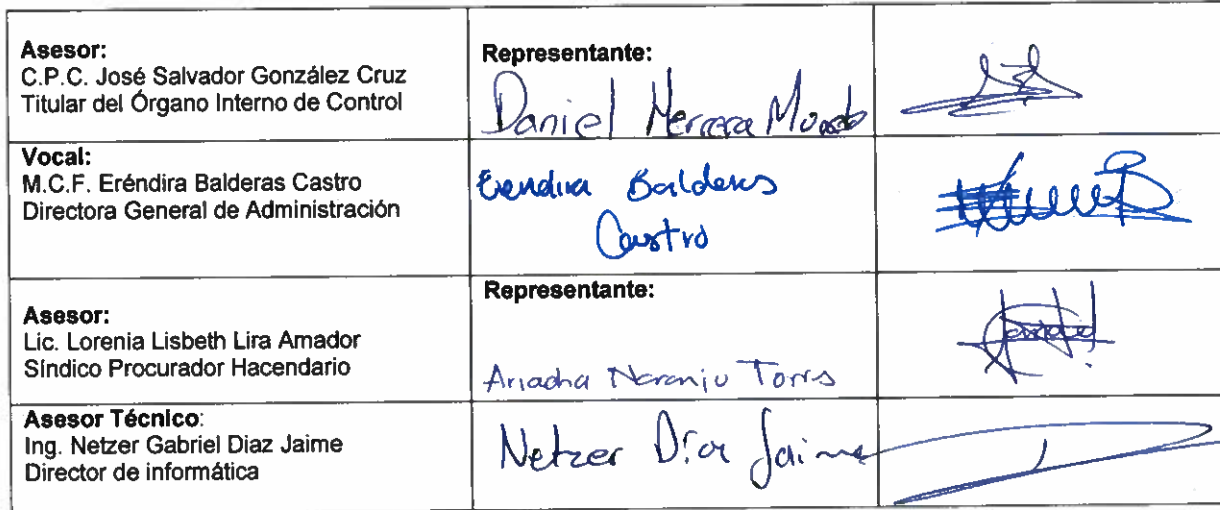 Asesor:
C.P.C. José Salvador González Cruz
Titular del Órgano Interno de Control
Representante:
Daniel Herrera
Vocal:
M.C.F. Eréndira Balderas Castro
Directora General de Administración
Erendira Balderas
Castro
Asesor:
Lic. Lorenia Lisbeth Lira Amador
Síndico Procurador Hacendario
Representante:
Ariadna Naranjo Torres
Asesor Técnico:
Ing. Netzer Gabriel Diaz Jaime
Director de informática
Netzer Díaz Jaime